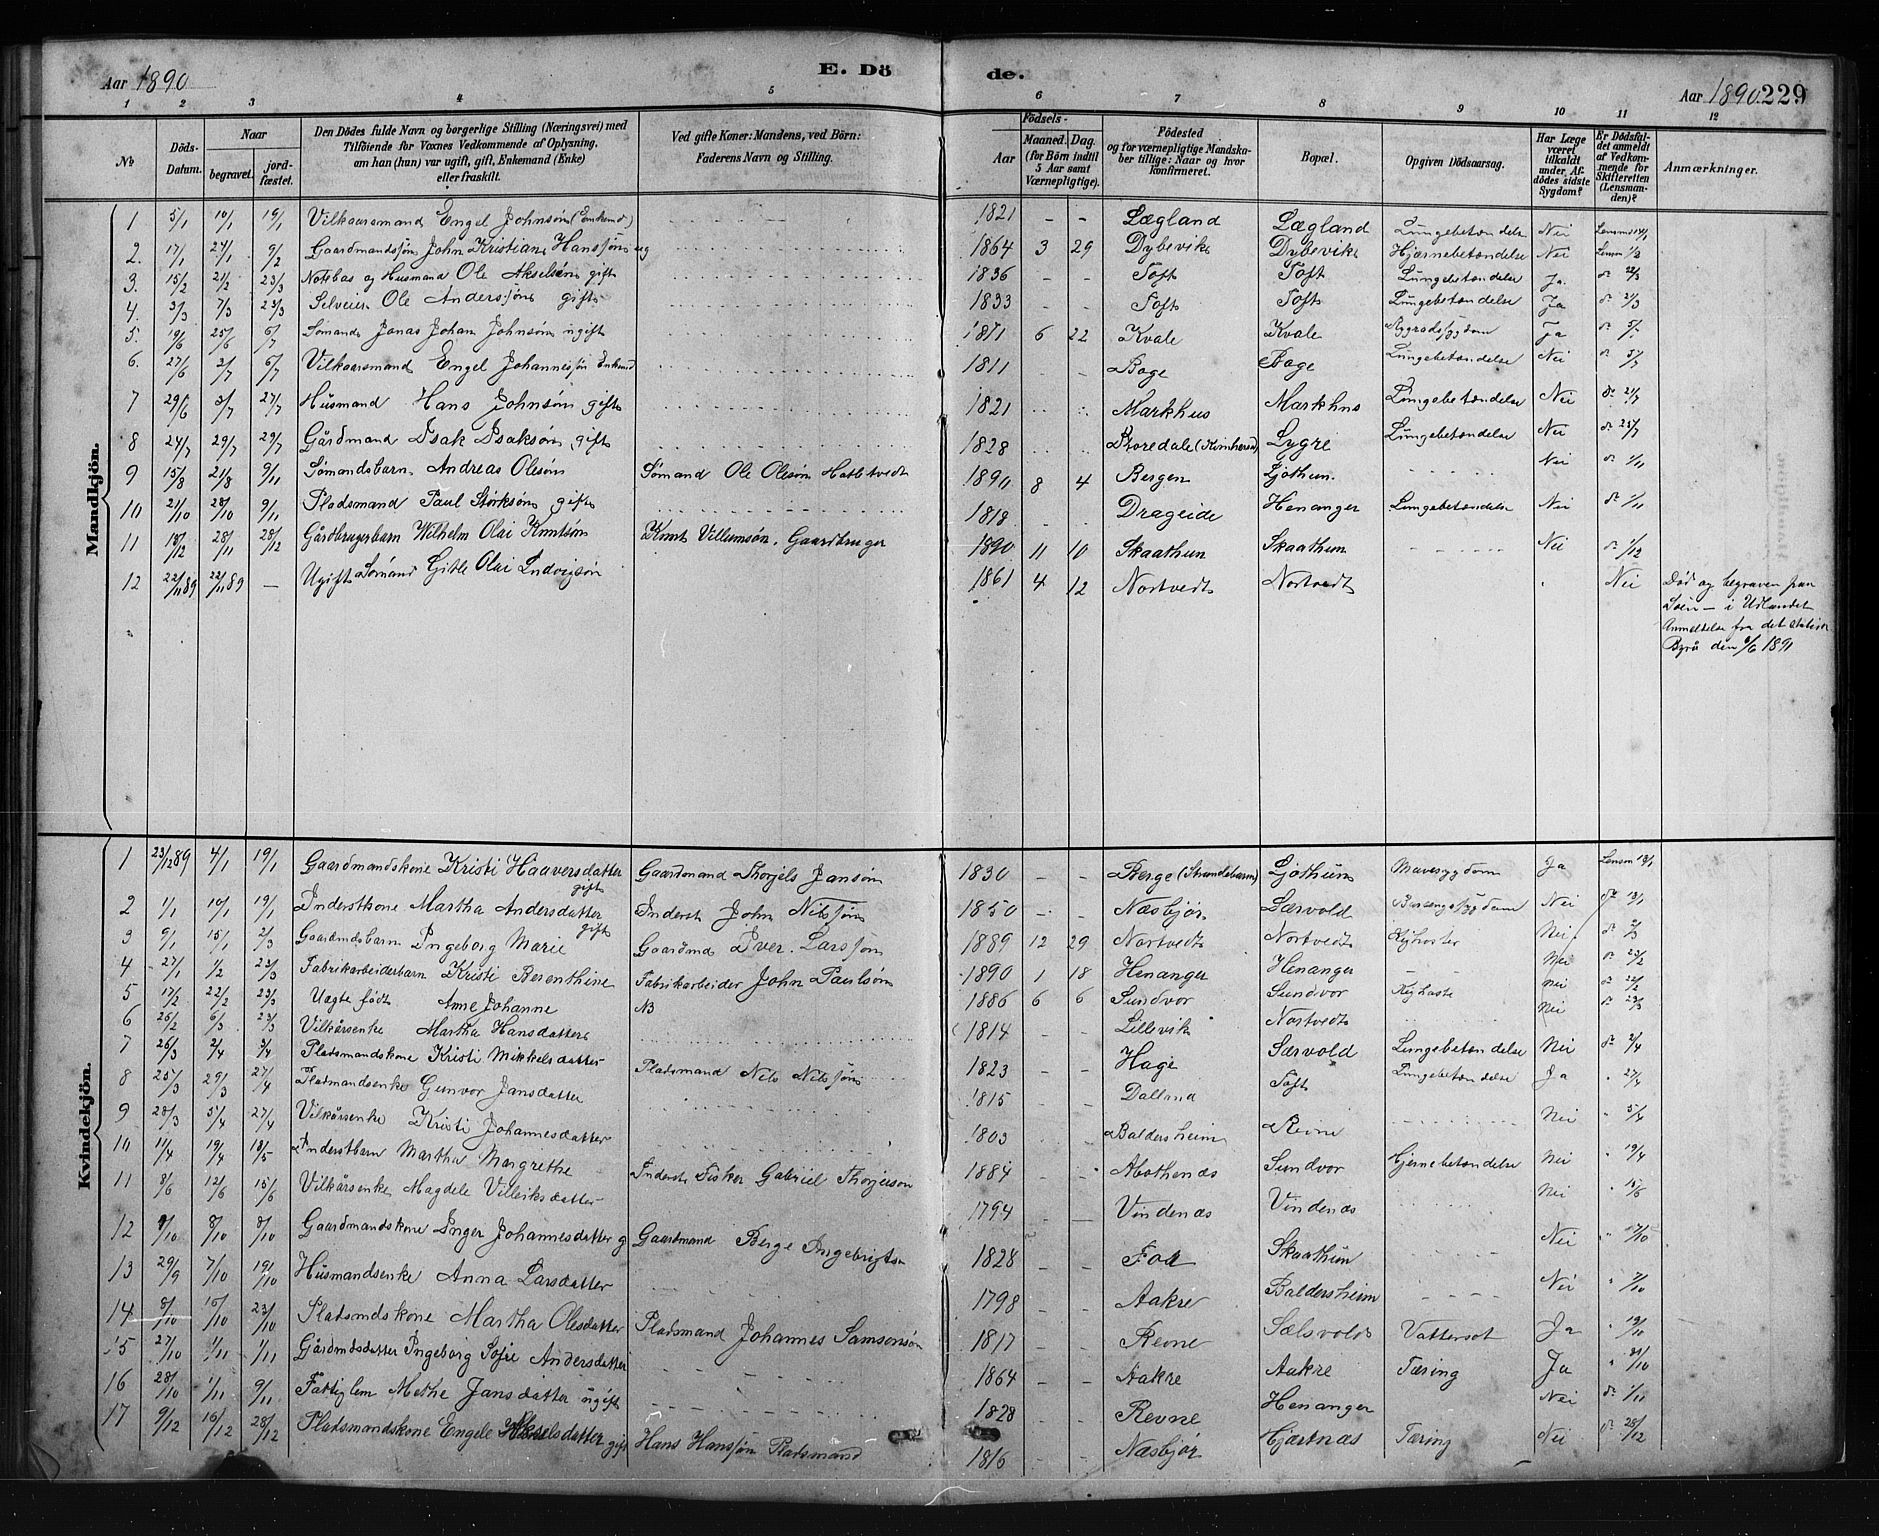 Aar 1890 E. Dö de. Aar 1890 229
1 2 3 4 5 6 7 8 9 10 11 12
No Döds-Datum. Naar begravet. jordfæstet. Den Dödes fulde Navn og borgerlige Stilling (Næringsvei) med Tilföiende for Voxnes Vedkommende af Oplysning, om han (hun) var ugift, gift, Enkemand (Enke) eller fraskilt. Ved gifte Koner: Mandens, ved Börn: Faderens Navn og Stilling. Födsels- Aar Maaned. Dag. (for Börn indtil 5 Aar samt Værnepligtige). Födested og for værnepligtige Mandskaber tillige: Naar og hvor konfirmeret. Bopæl. Opgiven Dödsaarsag. Har Læge været tilkaldt under Afdödes sidste Sygdom? Er Dödsfaldet anmeldt af Vedkommende for Skifteretten (Lensmanden)? Anmærkninger.
Mandkjön.
1 5/1 10/1 19/1 Vilkaarsmand Engel Johnsön (Enkemd) 1821 - - Lægland Lægland Lungebetændelse Nei Lensmd 14/1
2. 17/1 27/1 9/2 Gaardmandssön John Kristian Hanssön ug 1864 3 29 Dybevik Dybevik Hjernebetændelse Nei Lensm 1/2
3. 15/2 21/2 23/3 Notebas og Husmand Ole Akselsön gift 1836 - - Toft Toft Lungebetændelse Ja.
4. 3/3 7/3 23/3 Selveier Ole Anderssön gift 1833 - Toft Toft Lungebetændelse Ja do 21/3
5. 19/6 25/6 6/7 Sömand Jonas Johan Johnsön ugift 1871 6 22 Kvale Kvale Rygradssygdom Ja
6. 27/6 2/7 6/7 Vilkaarsmand Engel Johannessön Enkemd 1811 - Bage Bage Lungebetændelse Nei do 5/7
7 29/6 3/7 27/7 Husmand Hans Johnsön gift 1821 Markhus Markhus Lungebetændelse Nei do 21/7
8 24/7 29/7 29/7 Gårdmand Isak Isaksön, gift 1828 Lygre Lungebetændelse Nei do 25/7
9 15/8 21/8 9/11 Sömandsbarn Andreas Olesön Sömand Ole Olesön Hattetvedt 1890 8 4 Bergen Ljothun. Nei do 1/11
10 21/10 28/10 9/11 Pladsmand Paul Störksön gift 1818 Drageide Henanger Lungebetændelse Nei do 1/11
11 18/12 28/11 28/12 Gårdbrugerbarn Wilhelm Olai Knutsön Knut Villumsön, Gaardbruger 1890 11 10 Skaathun Skaathun Nei do 1/12
12 22/11 89 22/11 89 - Ugift Sömand Gitle Olai Ludvigsön 1861 4 12 Nortvedt Nortvedt Nei Död og begraven paa
Söen - i Udlandet
Anmeldelse fra det statist.
Byrå den 6/6 1891
Kvindekjön.
1 23/12 89 4/1 19/1 Gaardmandskone Kristi Haaversdatter gift Gaardmand Thorjels Jansön 1830 - - Berge (Strandebarm) Ljothun Mavesygdom Ja Lensm 13/1
2 1/1 10/1 19/1 Inderstkone Martha Andersdatter gift Inderst John Nilssön 1850 - - Næsbjör Særvold Barsengssygdom Nei do 13/1
3 9/1 15/1 2/3 Gaardmdsbarn Ingeborg Marie Gaardmd Iver Larssön 1889 12 29 Nortvedt Nortvedt Kighoste Nei do 2/3
4 27/1 1/2 23/3 Fabrikarbeiderbarn Kristi Berenthine Fabrikarbeider John Paulsön 1890 1 18 Henanger Henanger - Nei do 23/2
5 17/2 22/2 23/3 Uægte födt Anne Johanne NB 1886 6 6 Sundvor Sundvor Kighoste Nei do 22/2
6 26/2 6/3 23/3 Vilkårsenke Martha Hansdatter 1814 - - Lillevik Nortvedt Nei do 23/3
7 26/3 2/4 3/4 Pladsmandskone Kristi Mikkelsdatter Pladsmand Nils Nilssön 1823 - - Hage Særvold Lungebetændelse Nei do 2/4
8 25/3 29/3 27/4 Pladsmandsenke Gunvor Jansdatter 1815 - - Dalland Toft Lungebetændelse Ja " 27/4
9 28/3 5/4 27/4 Vilkårsenke Kristi Johannesdatter 1803 Baldersheim Revne Nei " 5/4
10 11/4 19/4 18/5 Inderstbarn Martha Margrethe Inderst Fisker Gabriel Thorjeison 1884 Abothenæs Sundvor Hjernebetændelse Nei " 19/4
11 8/6 12/6 15/6 Vilkårsenke Magdele Villeiksdatter 1794 - - Vindenæs Vindenæs Nei " 15/6
12 4/10 8/10 8/10 Gaardmandskone Inger Johannesdatter g Gaardmand Berge Ingebrigts. 1828 - - Foa Skaathun Nei " 7/10
13 29/9 7/10 19/10 Husmandsenke Anna Larsdatter 1798 - - Aakre Baldersheim Nei " 7/10
14 8/10 16/10 23/10 Pladsmdskone Martha Olesdatter Pladsmand Johannes Samsonsön 1817 - - Revne Sælsvold Vattersot Ja " 19/10
15 27/10 1/11 1/11 Gårdmdsdatter Ingeborg Sofie Andersdatter 1864 - - Aakre Aakre Tæring Ja " 31/10
16 28/10 1/11 9/11 Fattiglem Methe Jansdatter ugift 1828 - - Revne Henanger Nei do 1/11
17 9/12 16/12 28/12 Pladsmandskone Engele Akselsdatter gift Hans Hanssön Pladsmand 1816 - - Næsbjör Hjærtnæs Tæring Nei do 28/12